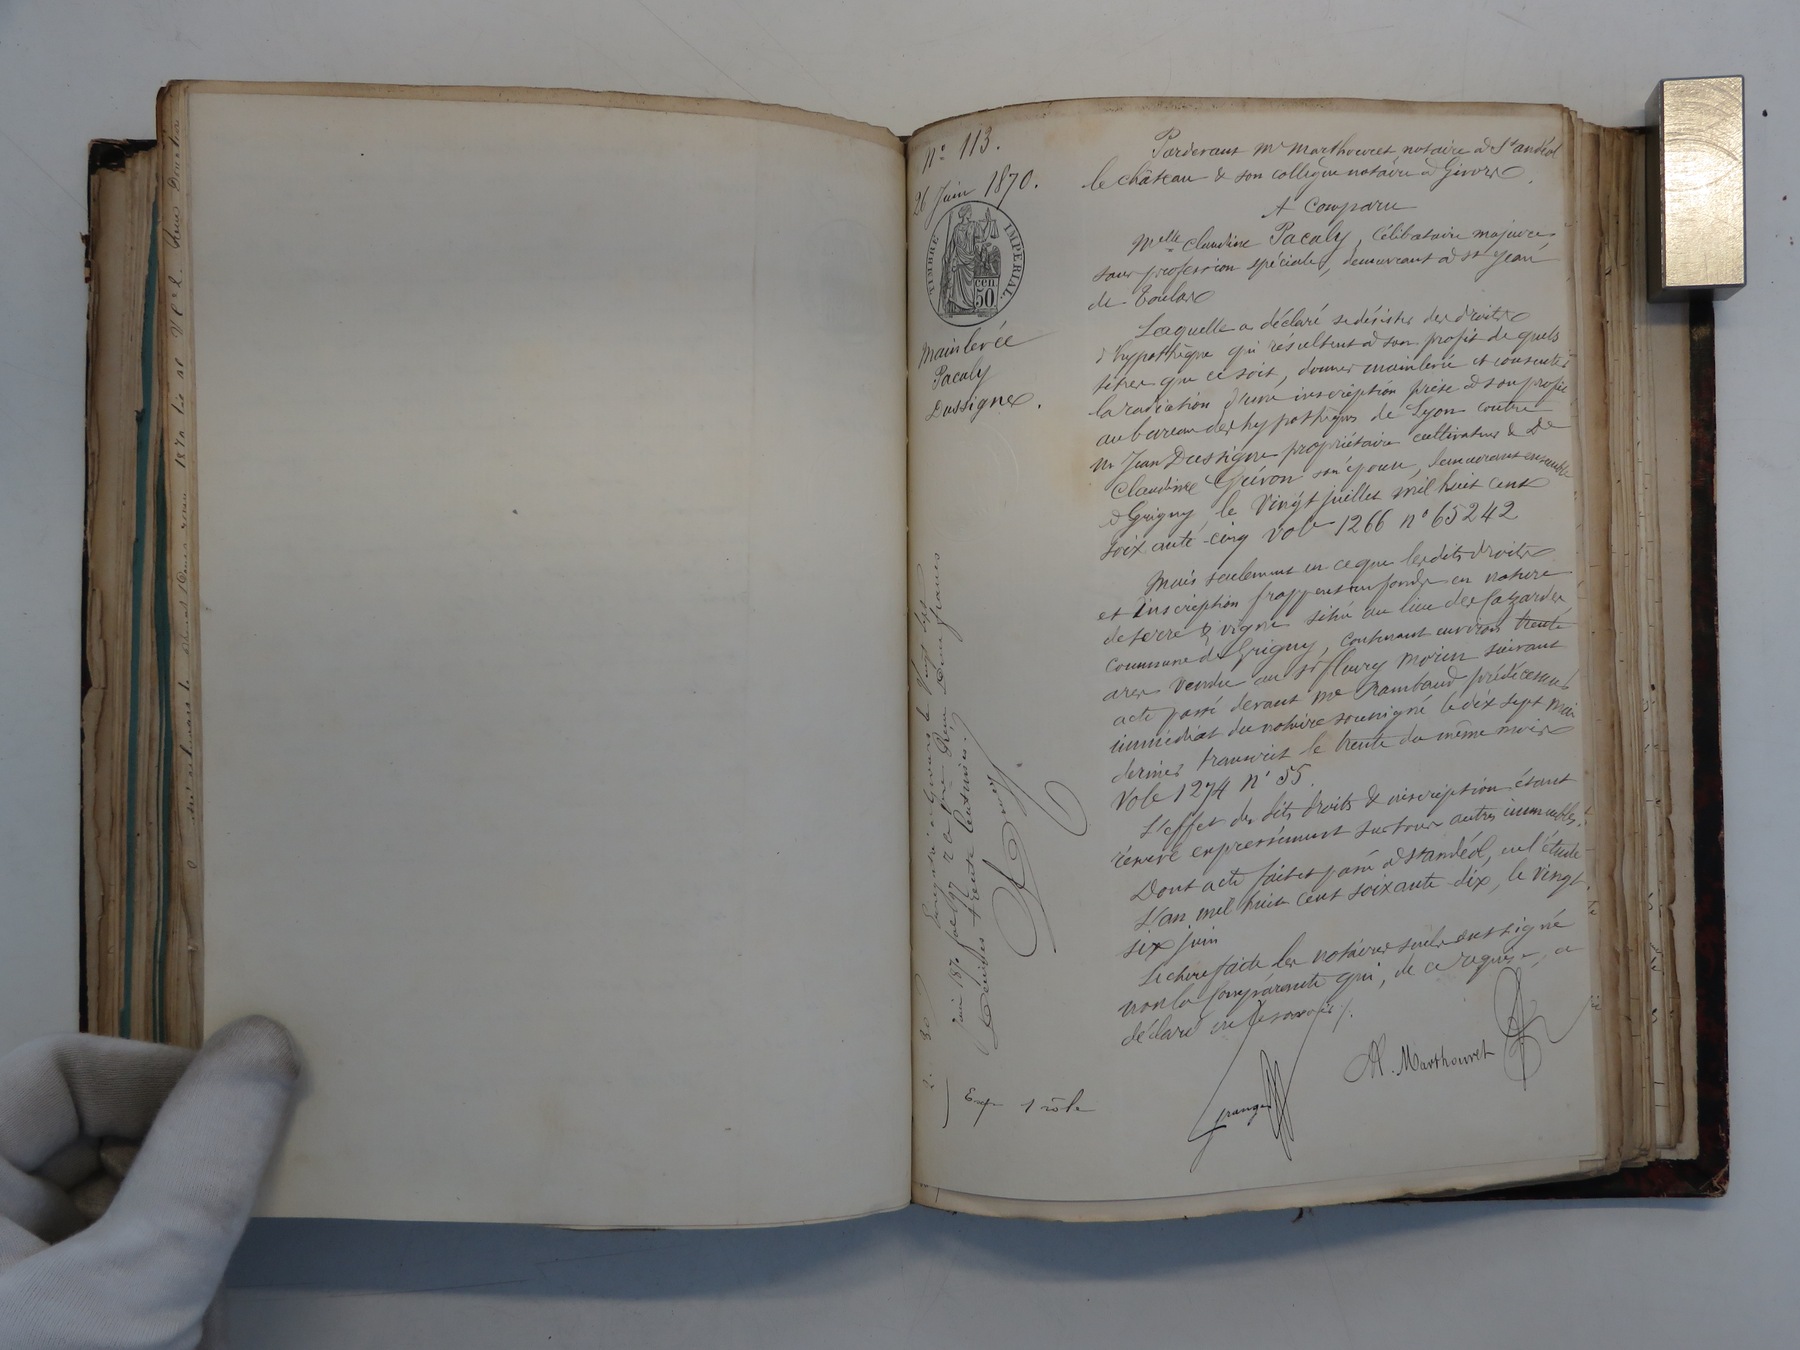 N° 113.
26 Juin 1870.
TIMBRE IMPERIAL
cen
50
Mainlevée
Pacaly
Dussigne.
Pardevant Me Marthouret notaire à St andéol
le château & son collègue notaire à Givors.
A Comparu
Melle Claudine Pacaly, Célibataire majeure
sans profession spéciale, demeurant à st Jean
de Toulas
Laquelle a déclaré se désister des droits
d'hypothèque qui résultent à son profit de quels
titres que ce soit, donner mainlevée et consentir
la radiation d'une inscription prise à son profit
au bureau des hypothèques de Lyon contre
Mr Jean Dussigne propriétaire cultivateur & De
Claudine son épouse, demeurant ensemble
à Grigny, le Vingt juillet mil huit cent
soixante-cinq Vol 1266 n° 65242
Mais seulement en ce que lesdits droits
et inscription frappent un fonds en nature
de terre & vigne situé au lieu des
commune de Grigny, contenant environ trente
ares vendu au sr fleury Morin suivant
acte passé devant Me Rambaud prédécesseur
immédiat du notaire soussigné le dix sept Mai
dernier transcrit le trente du même mois
Vol 1274 N° 55.
L'effet des dits droits & inscription étant
réservé expressément sur tous autres immeubles.
Dont acte fait et passé à St andéol, en l'étude
L'an mil huit cent soixante-dix, le vingt
six juin
Lecture faite les notaires seuls ont signé
non la Comparante qui, de ce requise, a
déclaré ne le savoir /.
A. Marthouret
Enregistré à Givors le Vingt sept
juin 1870 fol 97 Reçu Deux francs
Décimes trente centimes.
2. 30
Exp 1 rôle